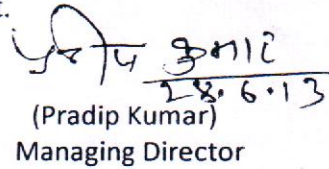 प्रदीप कुमार
28.6.13
(Pradip Kumar)
Managing Director